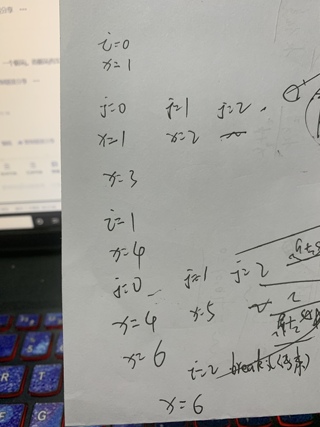 i=0
x=1
j=0 j=1 j=2
x=1 x=2
x=3
i=1
x=4
j=0 j=1 j=2
x=4 x=5
x=6
i=2 break
x=6